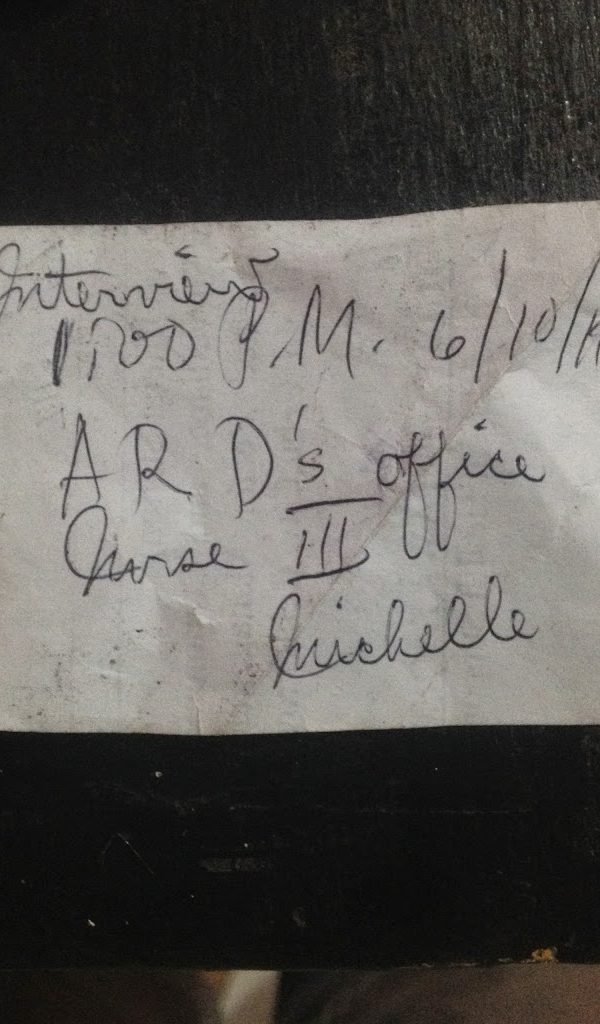 Interview
1:00 P.M. 6/10/
ARD's office
Nurse III
Michelle